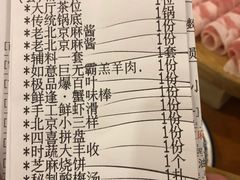 *大厅茶位
*传统锅底 1份
*老北京麻酱 1份
*老北京麻酱 1份
*辅料一套 1套
*如意巨无霸羔羊肉. 1份
*极品爆百叶 1份
*鲜蓬蟹味棒 1份
*手工鲜虾滑 1份
*北京小三样 1份
*四喜拼盘 1份
*时蔬大丰收 1份
*芝麻烧饼 1个
*秘制酸梅汤 1扎